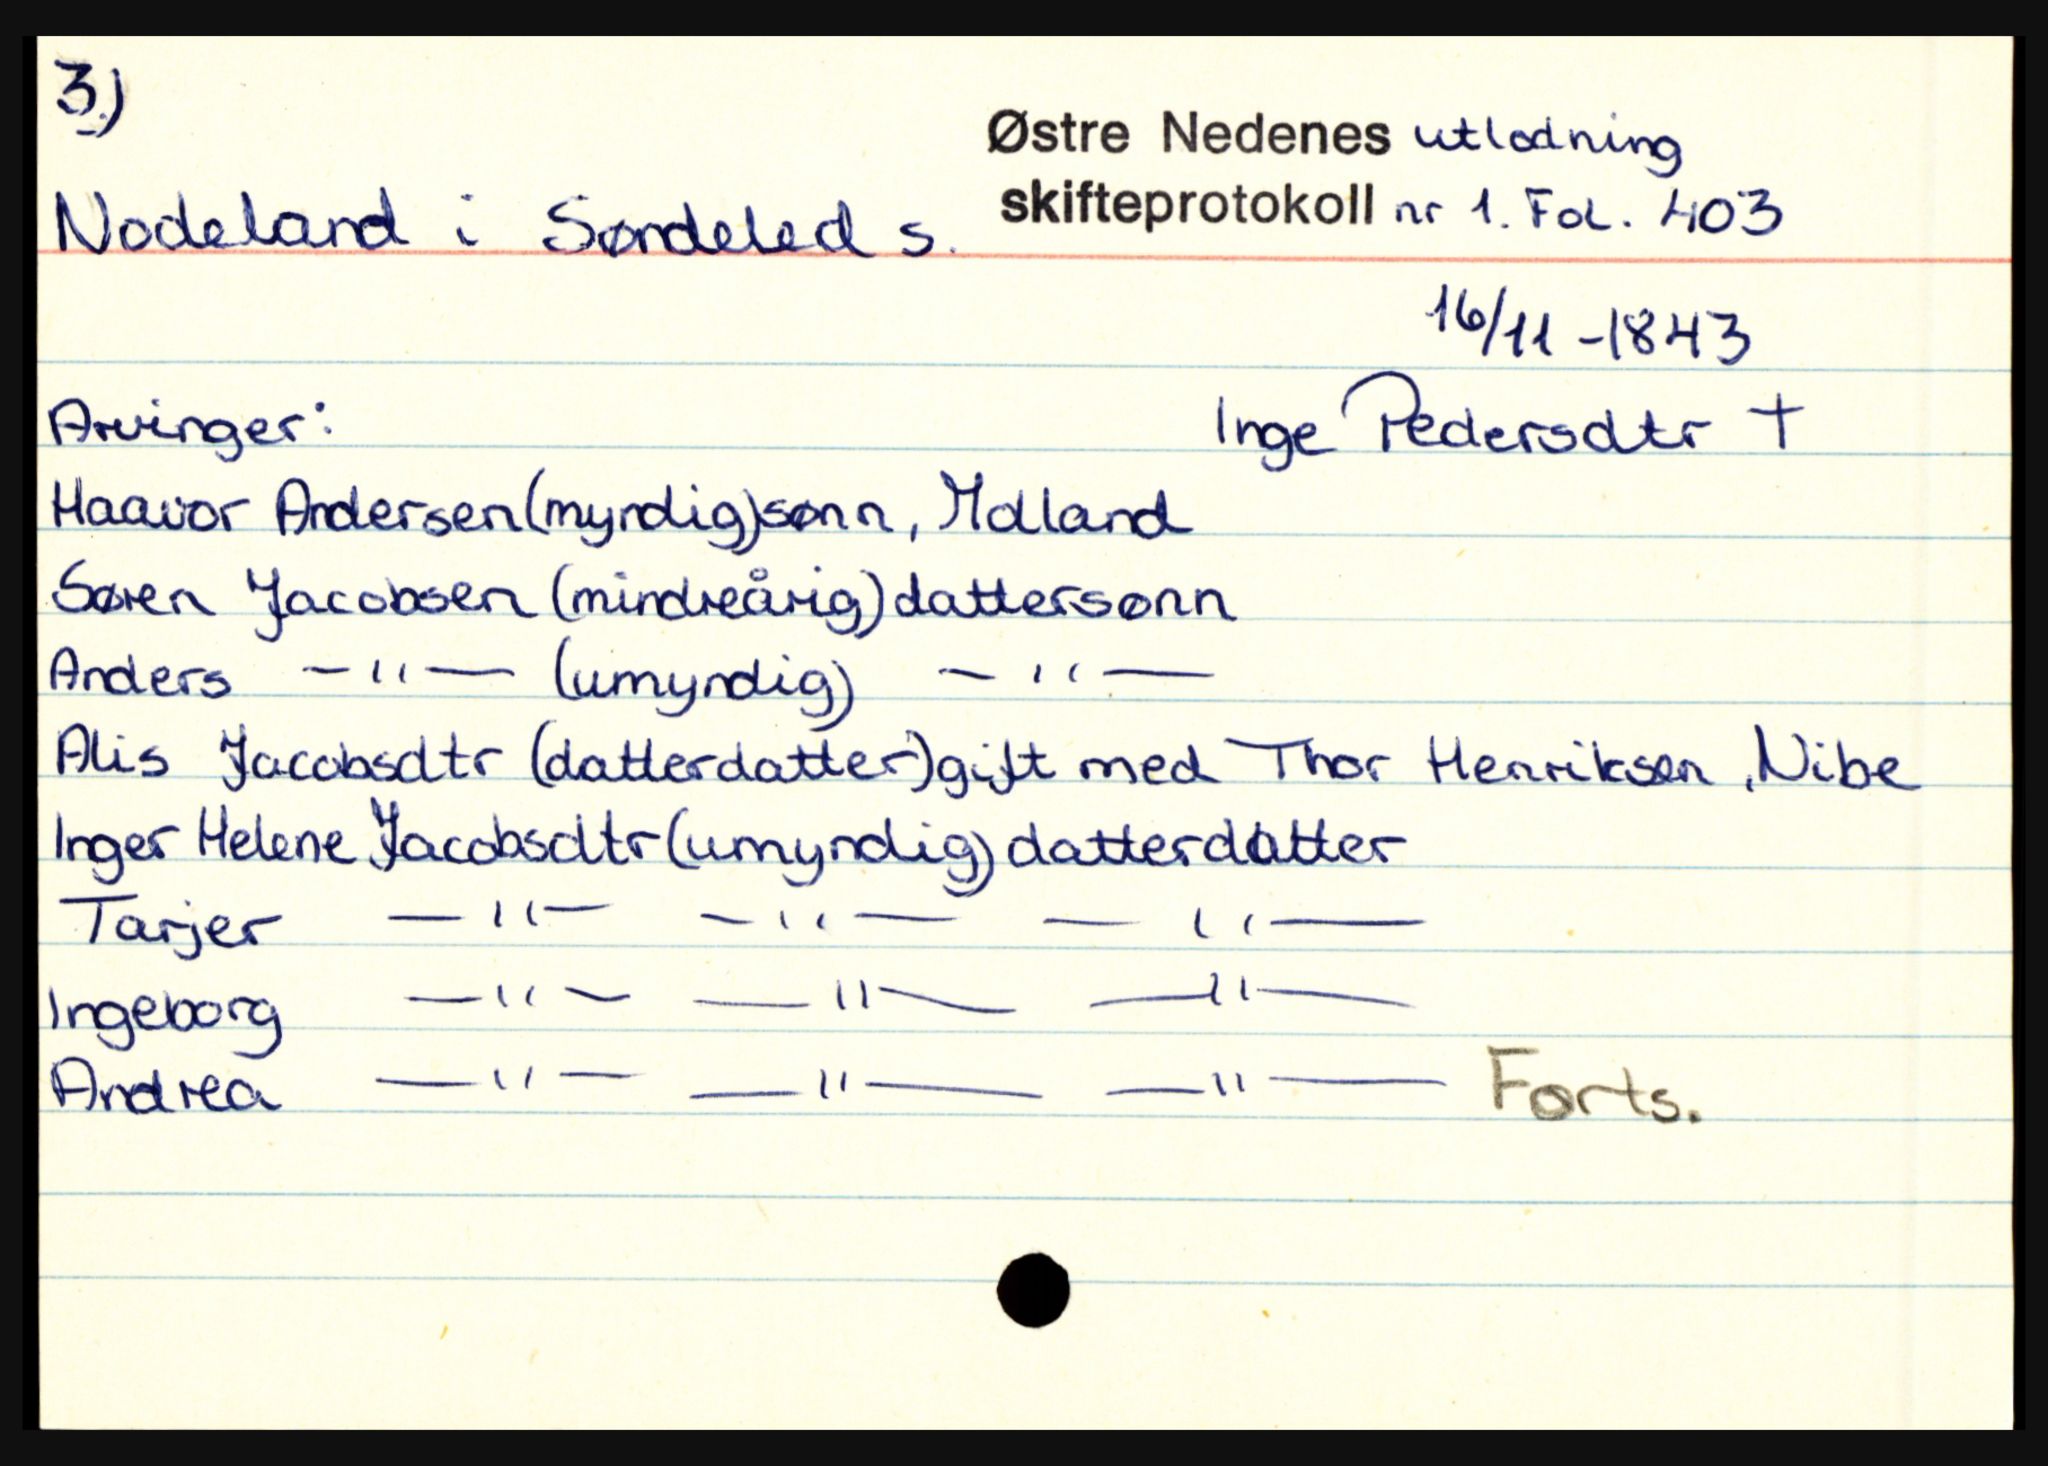 3.)
Østre Nedenes utlodning
Nodeland i Søndeled s. skifteprotokoll nr 1. Fol. 403
16/11 -1843
Arvinger: Inge Pedersdtr †
Haavor Andersen (myndig) sønn, Ydland
Søren Jacobsen (mindreårig) dattersønn
Anders —"— (umyndig) —"—
Alis Jacobsdtr (datterdatter) gift med Thor Henriksen, Nibe
Inger Helene Jacobsdtr (umyndig) datterdatter
Tarjer —"— —"— —"—
Ingeborg —"— —"— —"—
Andrea —"— —"— —"— Forts.